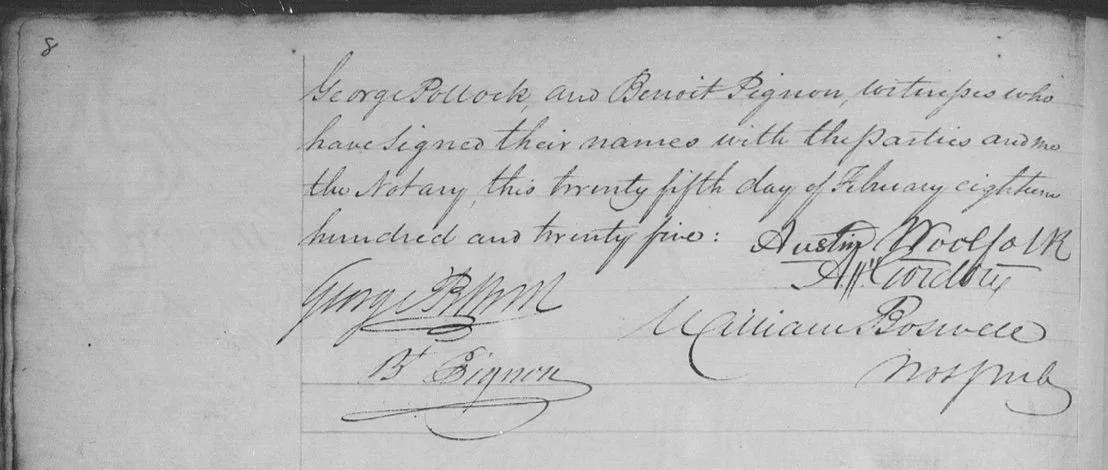 8
George Pollock, and Benoit Pignon, witnesses who
have signed their names with the parties and me
the Notary, this twenty fifth day of February eighteen
hundred and twenty five:
Austin Woolfolk
Gordon
George Pollock
William Boswell
Bt Pignon
Not Pub